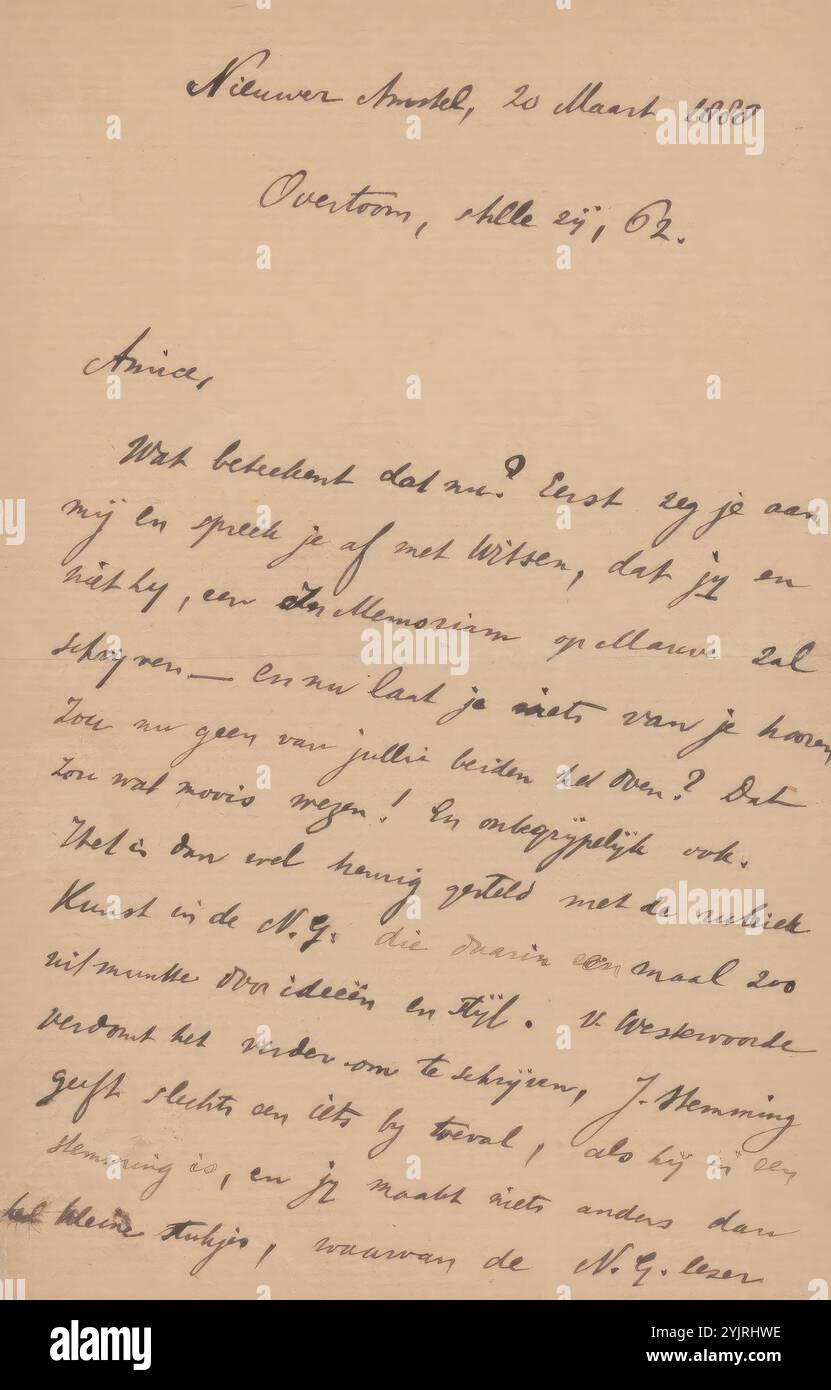 Nieuwer Amstel, 20 Maart 1888
Overtoom, stille zij, 62.
Amice,
Wat beteekent dat nu? Eerst zeg je aan
mij en spreek je af met Witsen, dat jij en
niet hy, een In Memoriam op Mauve zal
schrijven — en nu laat je niets van je hooren
Zou nu geen van jullie beiden het doen? Dat
zou wat moois wezen! En onbegrijpelijk ook.
Het is dan wel heurig gesteld met de rubriek
Kunst in de N.G. die daarin een maal zoo
uitmuntte door ideeën en stijl. V. Westervoorde
verdomt het verder om te schrijven, J. Stemming
geeft slechts een iets by toeval, als hij in een
stemming is, en jij maakt niets anders dan
kleine stukjes, waarvan de N.G. lezer
alamy
Image ID: 2YJRHWE
www.alamy.com